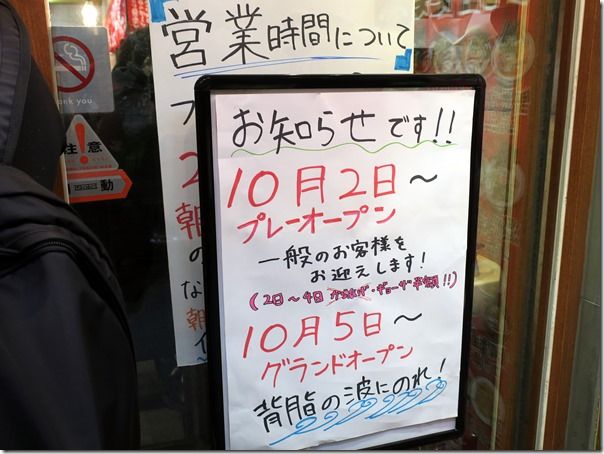 営業時間について
プ
2
朝
の
な
朝
イ
Thank you
注意
動
お知らせです!!
10月2日〜
プレーオープン
一般のお客様を
お迎えします!
(2日〜4日 からあげ・ギョーザ半額!!)
10月5日〜
グランドオープン
背脂の波にのれ!